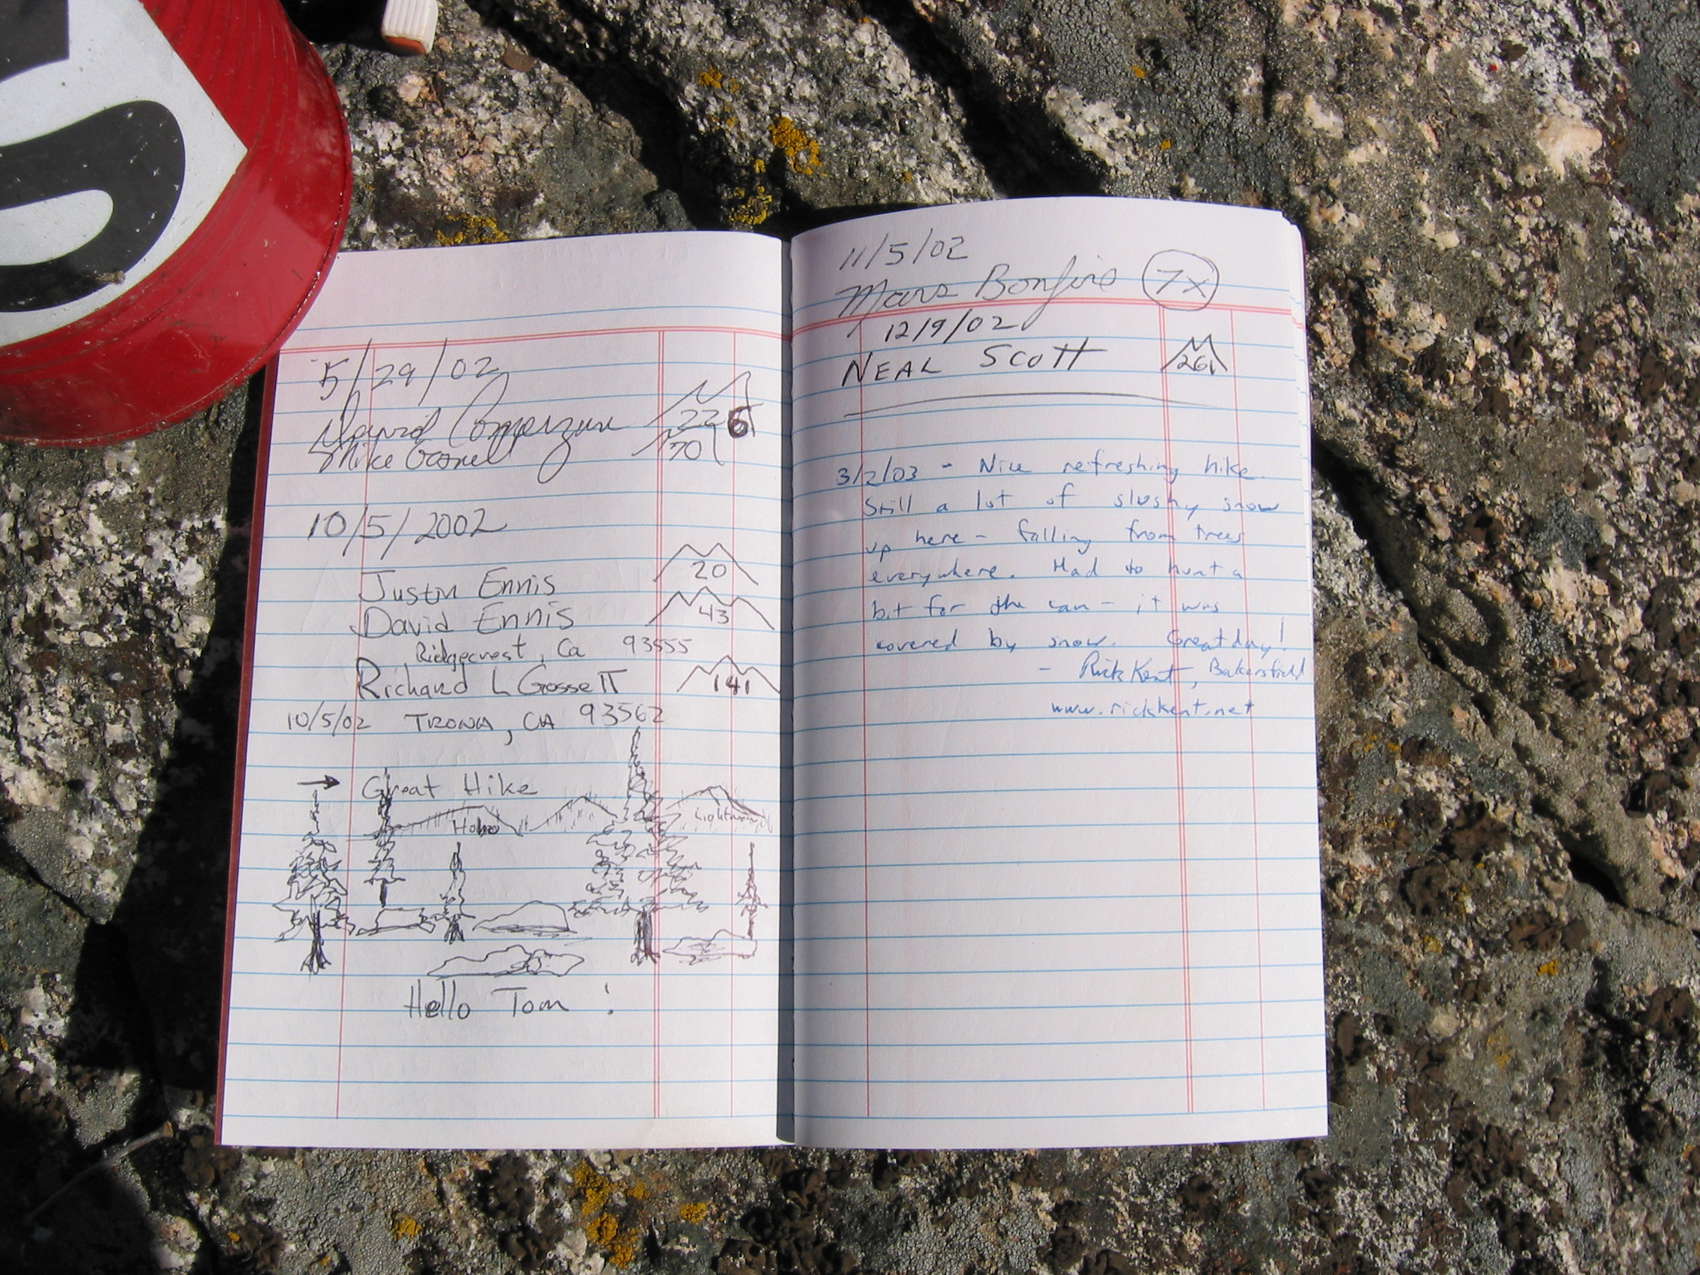 5/29/02
David Comerzan 226
Mike 70
10/5/2002
Justin Ennis 20
David Ennis 43
Ridgecrest, Ca 93555
Richard L Gossett 141
10/5/02 TRONA, CA 93562
→ Great Hike
Hobo
Hello Tom !
11/5/02
Mars Bonfire 7x
12/9/02
NEAL SCOTT 261
3/2/03 - Nice refreshing hike.
Still a lot of slushy snow
up here - falling from trees
everywhere. Had to hunt a
bit for the can - it was
covered by snow. Great day!
- Rick Kent, Bakersfield
www.rickkent.net